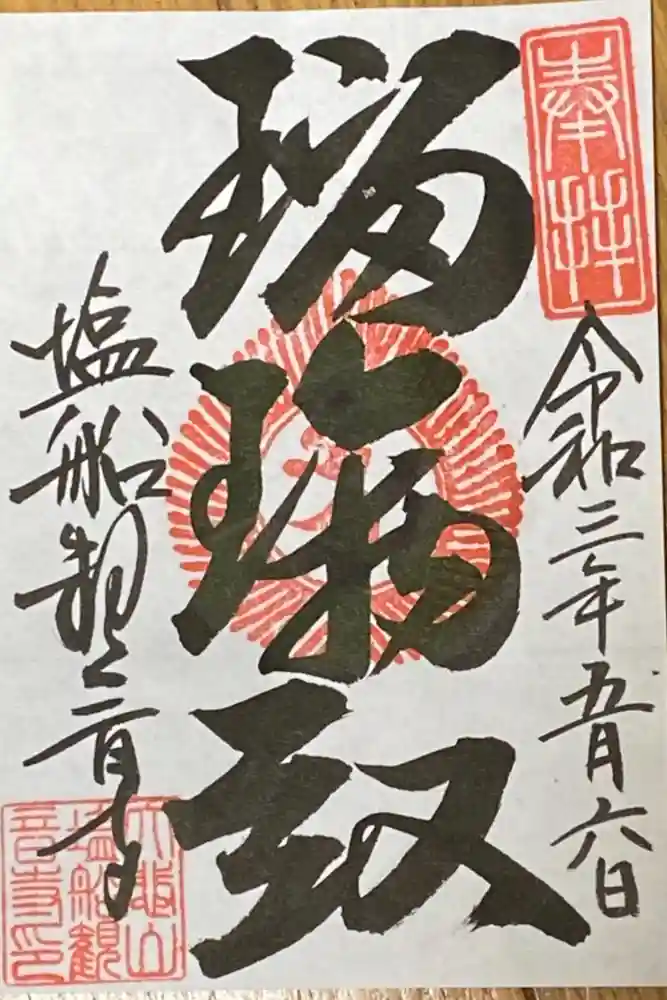 奉拝
令和三年五月六日
瑠璃殿
塩船観音寺
大悲山
塩船観
音寺印